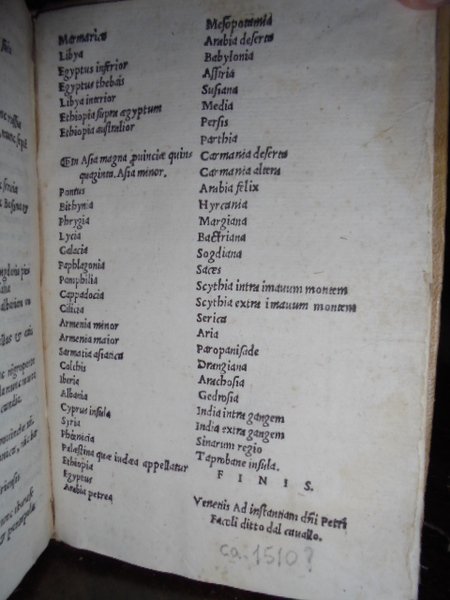 Marmarica
Libya
Egyptus inferior
Egyptus thebais
Libya interior
Ethiopia supra ægyptum
Ethiopia australior
In Asia magna puinciæ quins
quaginta. Asia minor.
Pontus
Bithynia
Phrygia
Lycia
Galacia
Paphlagonia
Pamphilia
Cappadocia
Cilicia
Armenia minor
Armenia maior
Sarmatia asiatica
Colchis
Iberia
Albania
Cyprus insula
Syria
Phœnicia
Palestina quæ iudæa appellatur
Ethiopia
Egyptus
Arabia petrea
Mesopotamia
Arabia deserta
Babylonia
Assiria
Susiana
Media
Persis
Parthia
Carmania deserta
Carmania altera
Arabia felix
Hyrcania
Margiana
Bactriana
Sogdiana
Saces
Scythia intra imauum montem
Scythia extra imauum montem
Serica
Aria
Paropanisade
Drangiana
Arachosia
Gedrosia
India intra gangem
India extra gangem
Sinarum regio
Taprobane insula.
F I N I S.
Venetiis Ad instantiam dñi Petri
Facoli ditto dal cauallo.
ca. 1510?